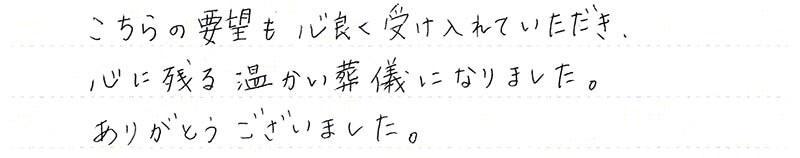 こちらの要望も心良く受け入れていただき、
心に残る温かい葬儀になりました。
ありがとうございました。